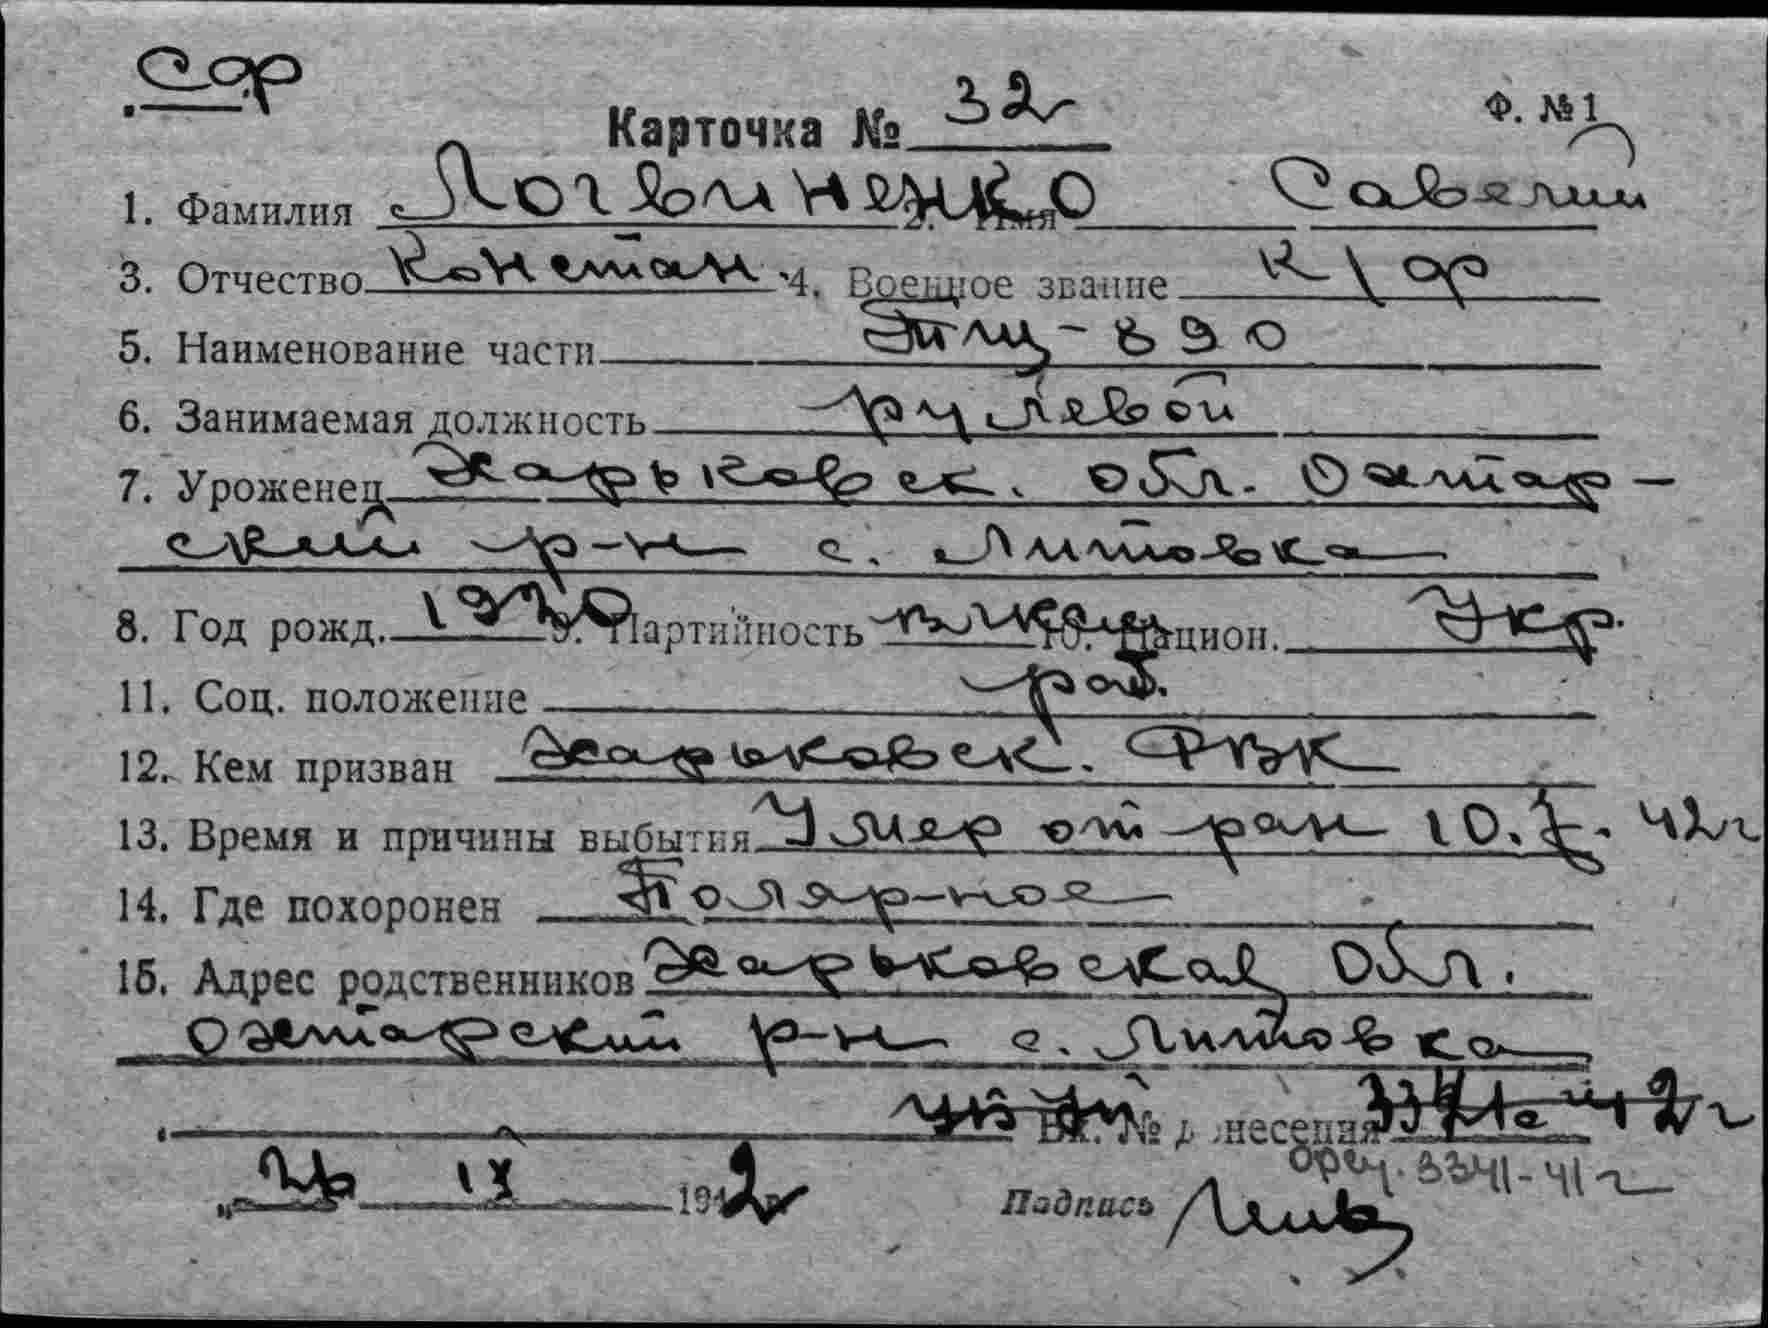 СФ
Карточка № 32
Ф. № 1
1. Фамилия Логвиненко 2. Имя Савелий
3. Отчество Констан 4. Военное звание к/ф
5. Наименование части Тщ-890
6. Занимаемая должность рулевой
7. Уроженец Харьковск. обл. Охтар-
ский р-н с. Литовка
8. Год рожд. 1920 9. Партийность влксм 10. Национ. Укр.
11. Соц. положение раб.
12. Кем призван Харьковск. РВК
13. Время и причины выбытия Умер от ран 10. 42г
14. Где похоронен Полярное
15. Адрес родственников Харьковская Обл.
Охтарский р-н с. Литовка
Вх. № донесения 42г
3341-41г
"26 IX 1942 г. Подпись